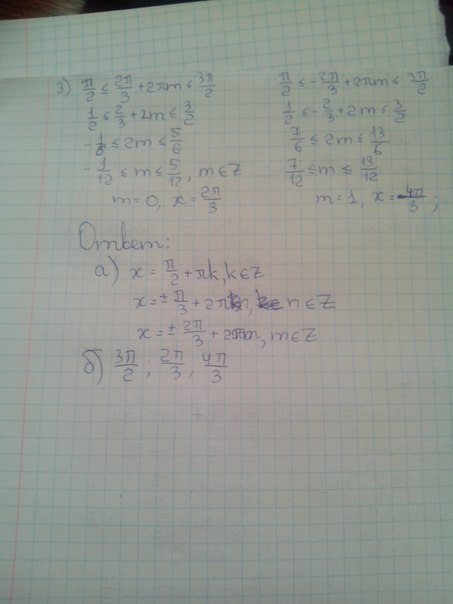 3) π/2 ≤ 2π/3 + 2πm ≤ 3π/2
1/2 ≤ 2/3 + 2m ≤ 3/2
-1/6 ≤ 2m ≤ 5/6
-1/12 ≤ m ≤ 5/12, m∈Z
m=0, x = 2π/3
π/2 ≤ -2π/3 + 2πm ≤ 3π/2
1/2 ≤ -2/3 + 2m ≤ 3/2
7/6 ≤ 2m ≤ 13/6
7/12 ≤ m ≤ 13/12
m=1, x = 4π/3;
Ответ:
а) x = π/2 + πk, k∈Z
x = ± π/3 + 2πn, n∈Z
x = ± 2π/3 + 2πm, m∈Z
б) 3π/2, 2π/3, 4π/3